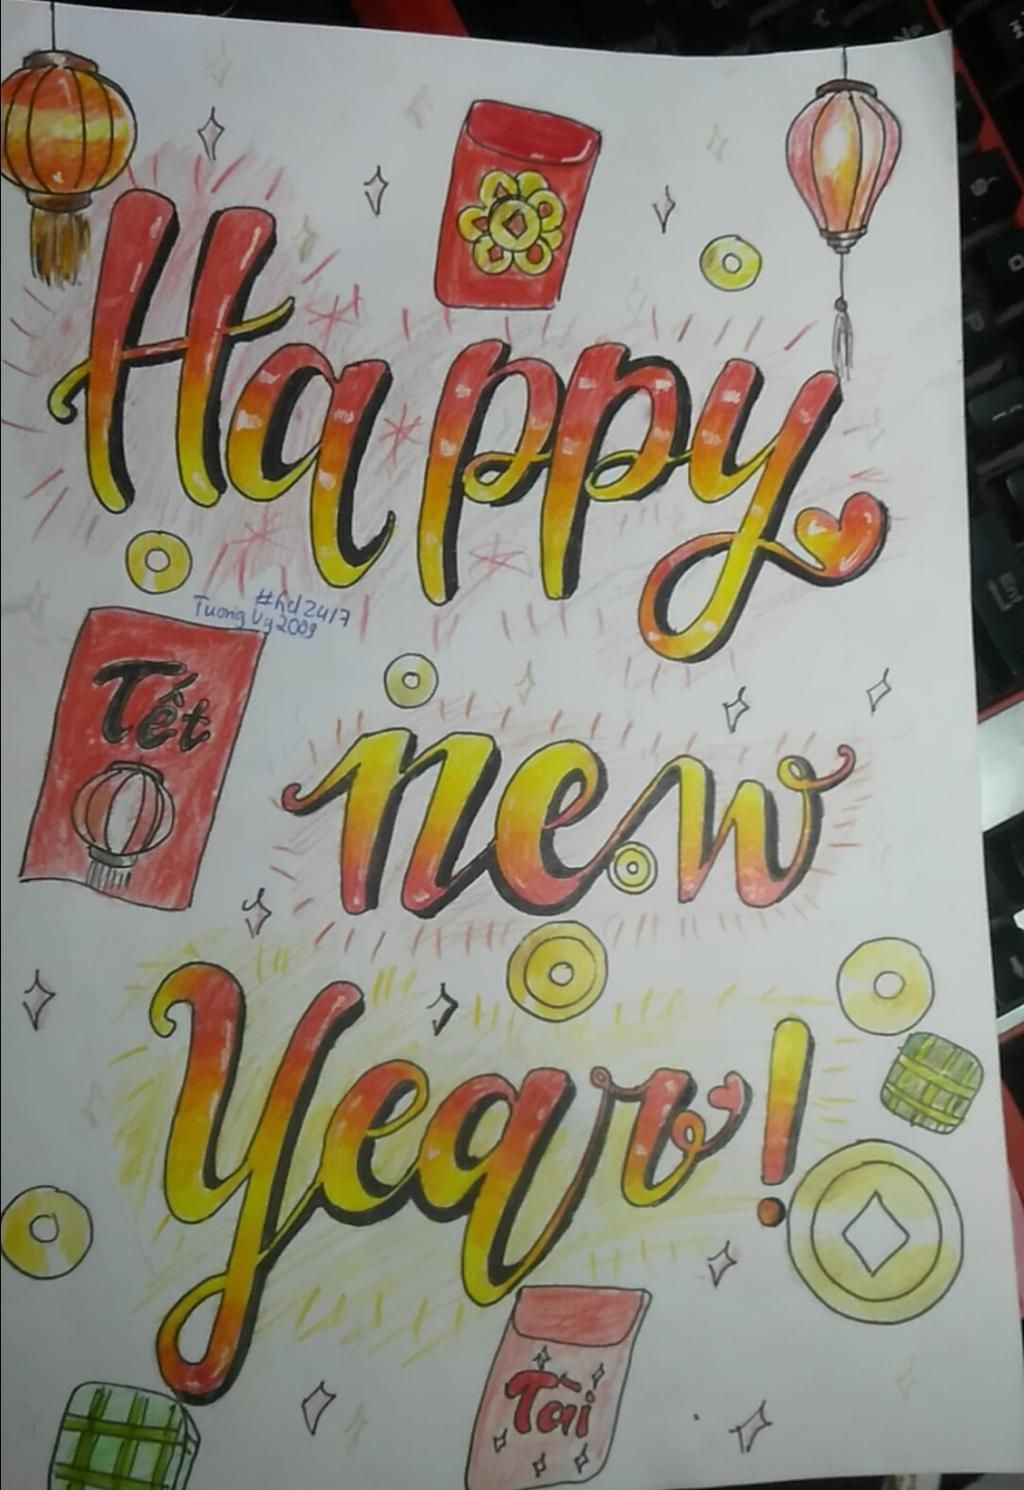 Happy
#hd2417
Tuong Vy2009
Tết
new
Year!
Tài